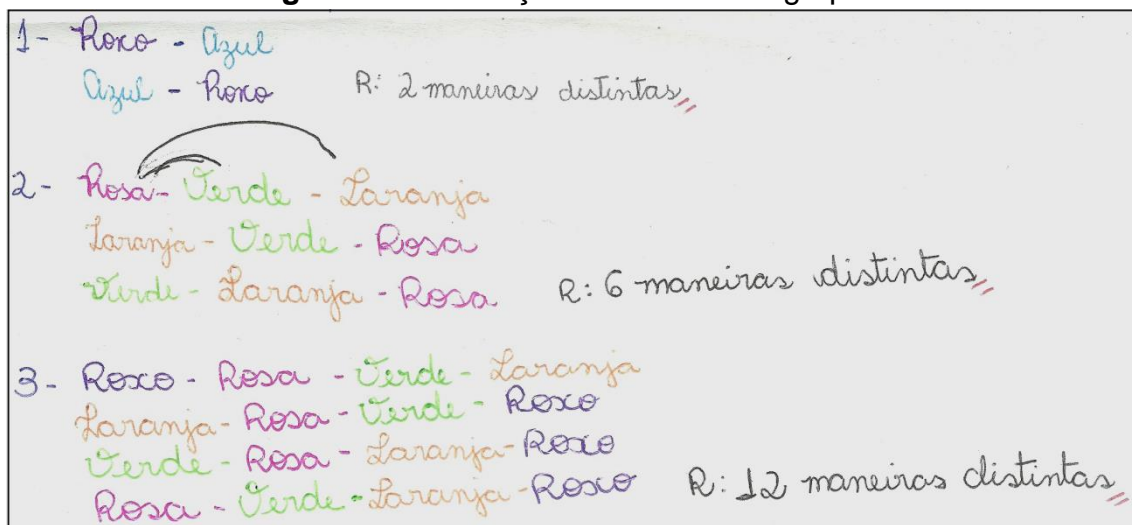 1- Roxo - Azul
Azul - Roxo R: 2 maneiras distintas
2- Rosa - Verde - Laranja
Laranja - Verde - Rosa
Verde - Laranja - Rosa R: 6 maneiras distintas
3- Roxo - Rosa - Verde - Laranja
Laranja - Rosa - Verde - Roxo
Verde - Rosa - Laranja - Roxo
Rosa - Verde - Laranja - Roxo R: 12 maneiras distintas